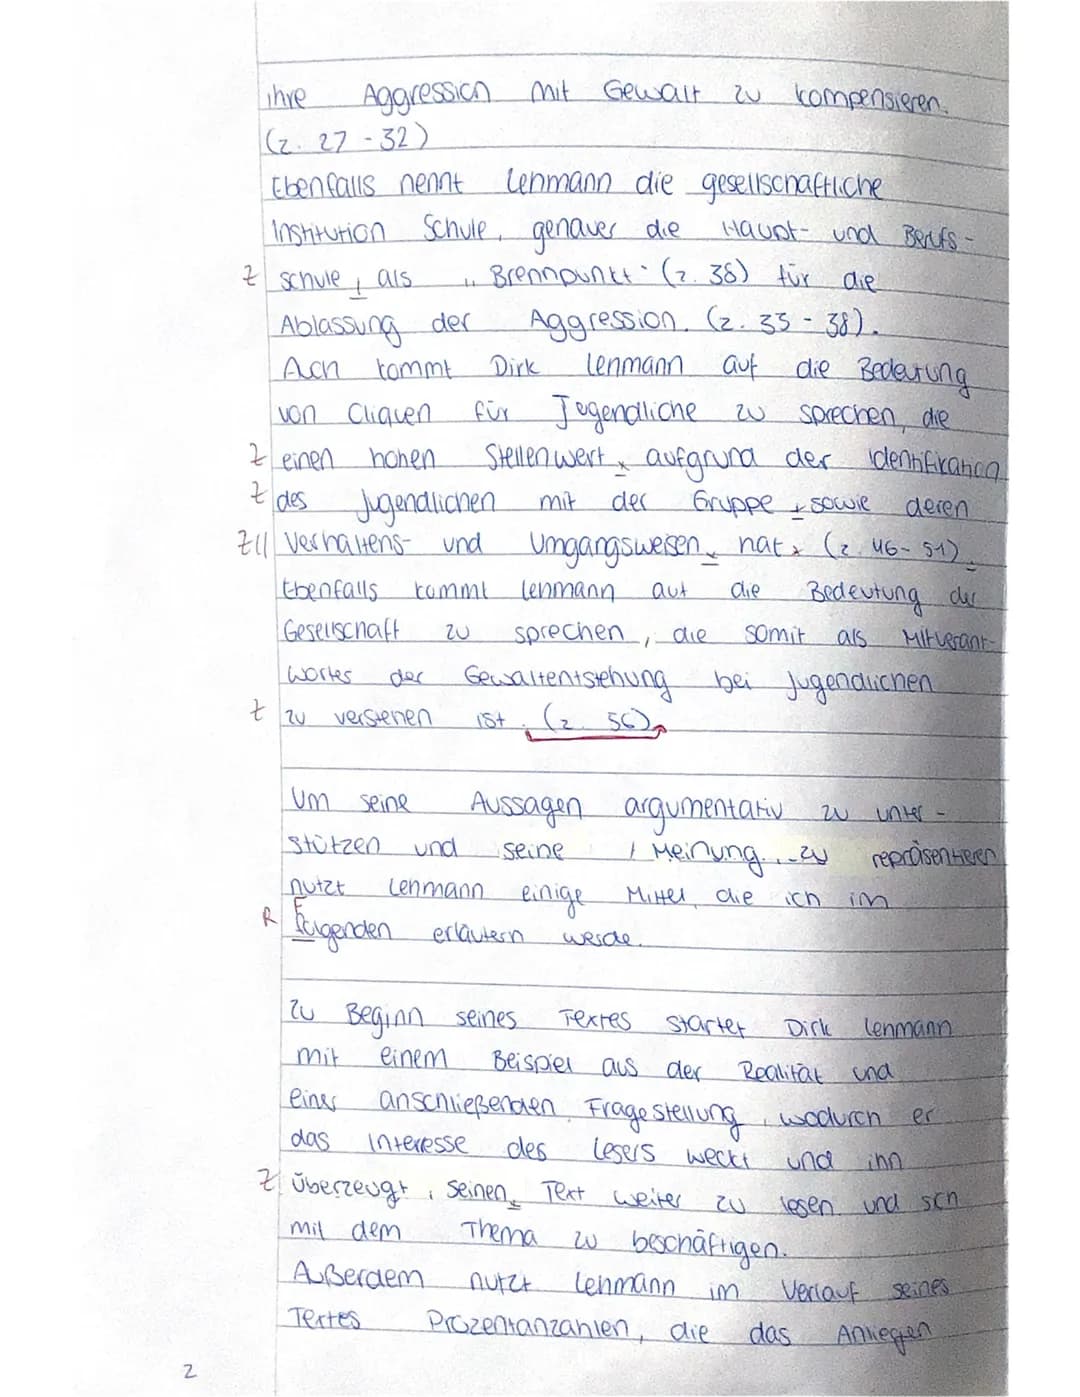 ihre Aggression mit Gewalt zu kompensieren.
(Z. 27 - 32)
Ebenfalls nennt Lehmann die gesellschaftliche
Institution Schule, genauer die Haupt- und Berufs-
Z schule, als "Brennpunkt" (Z. 38) für die
Ablassung der Aggression. (Z. 33 - 38).
Auch kommt Dirk Lehmann auf die Bedeutung
von Cliquen für Jugendliche zu sprechen, die
Z einen hohen Stellenwert, aufgrund der Identifikation
Z des Jugendlichen mit der Gruppe, sowie deren
Z|| Verhaltens- und Umgangsweisen, hat, (Z. 46 - 51).
Ebenfalls kommt Lehmann auf die Bedeutung der
Gesellschaft zu sprechen, die somit als Mitverant-
worter der Gewaltentstehung bei Jugendlichen
Z zu verstehen ist. (Z. 56).
Um seine Aussagen argumentativ zu unter-
stützen und seine Meinung zu repräsentieren
nutzt Lehmann einige Mittel, die ich im
R Folgenden erläutern werde.
Zu Beginn seines Textes startet Dirk Lehmann
mit einem Beispiel aus der Realität und
einer anschließenden Fragestellung, wodurch er
das Interesse des Lesers weckt und ihn
Z überzeugt, seinen Text weiter zu lesen und sich
mit dem Thema zu beschäftigen.
Außerdem nutzt Lehmann im Verlauf seines
Textes Prozentanzahlen, die das Anliegen
2